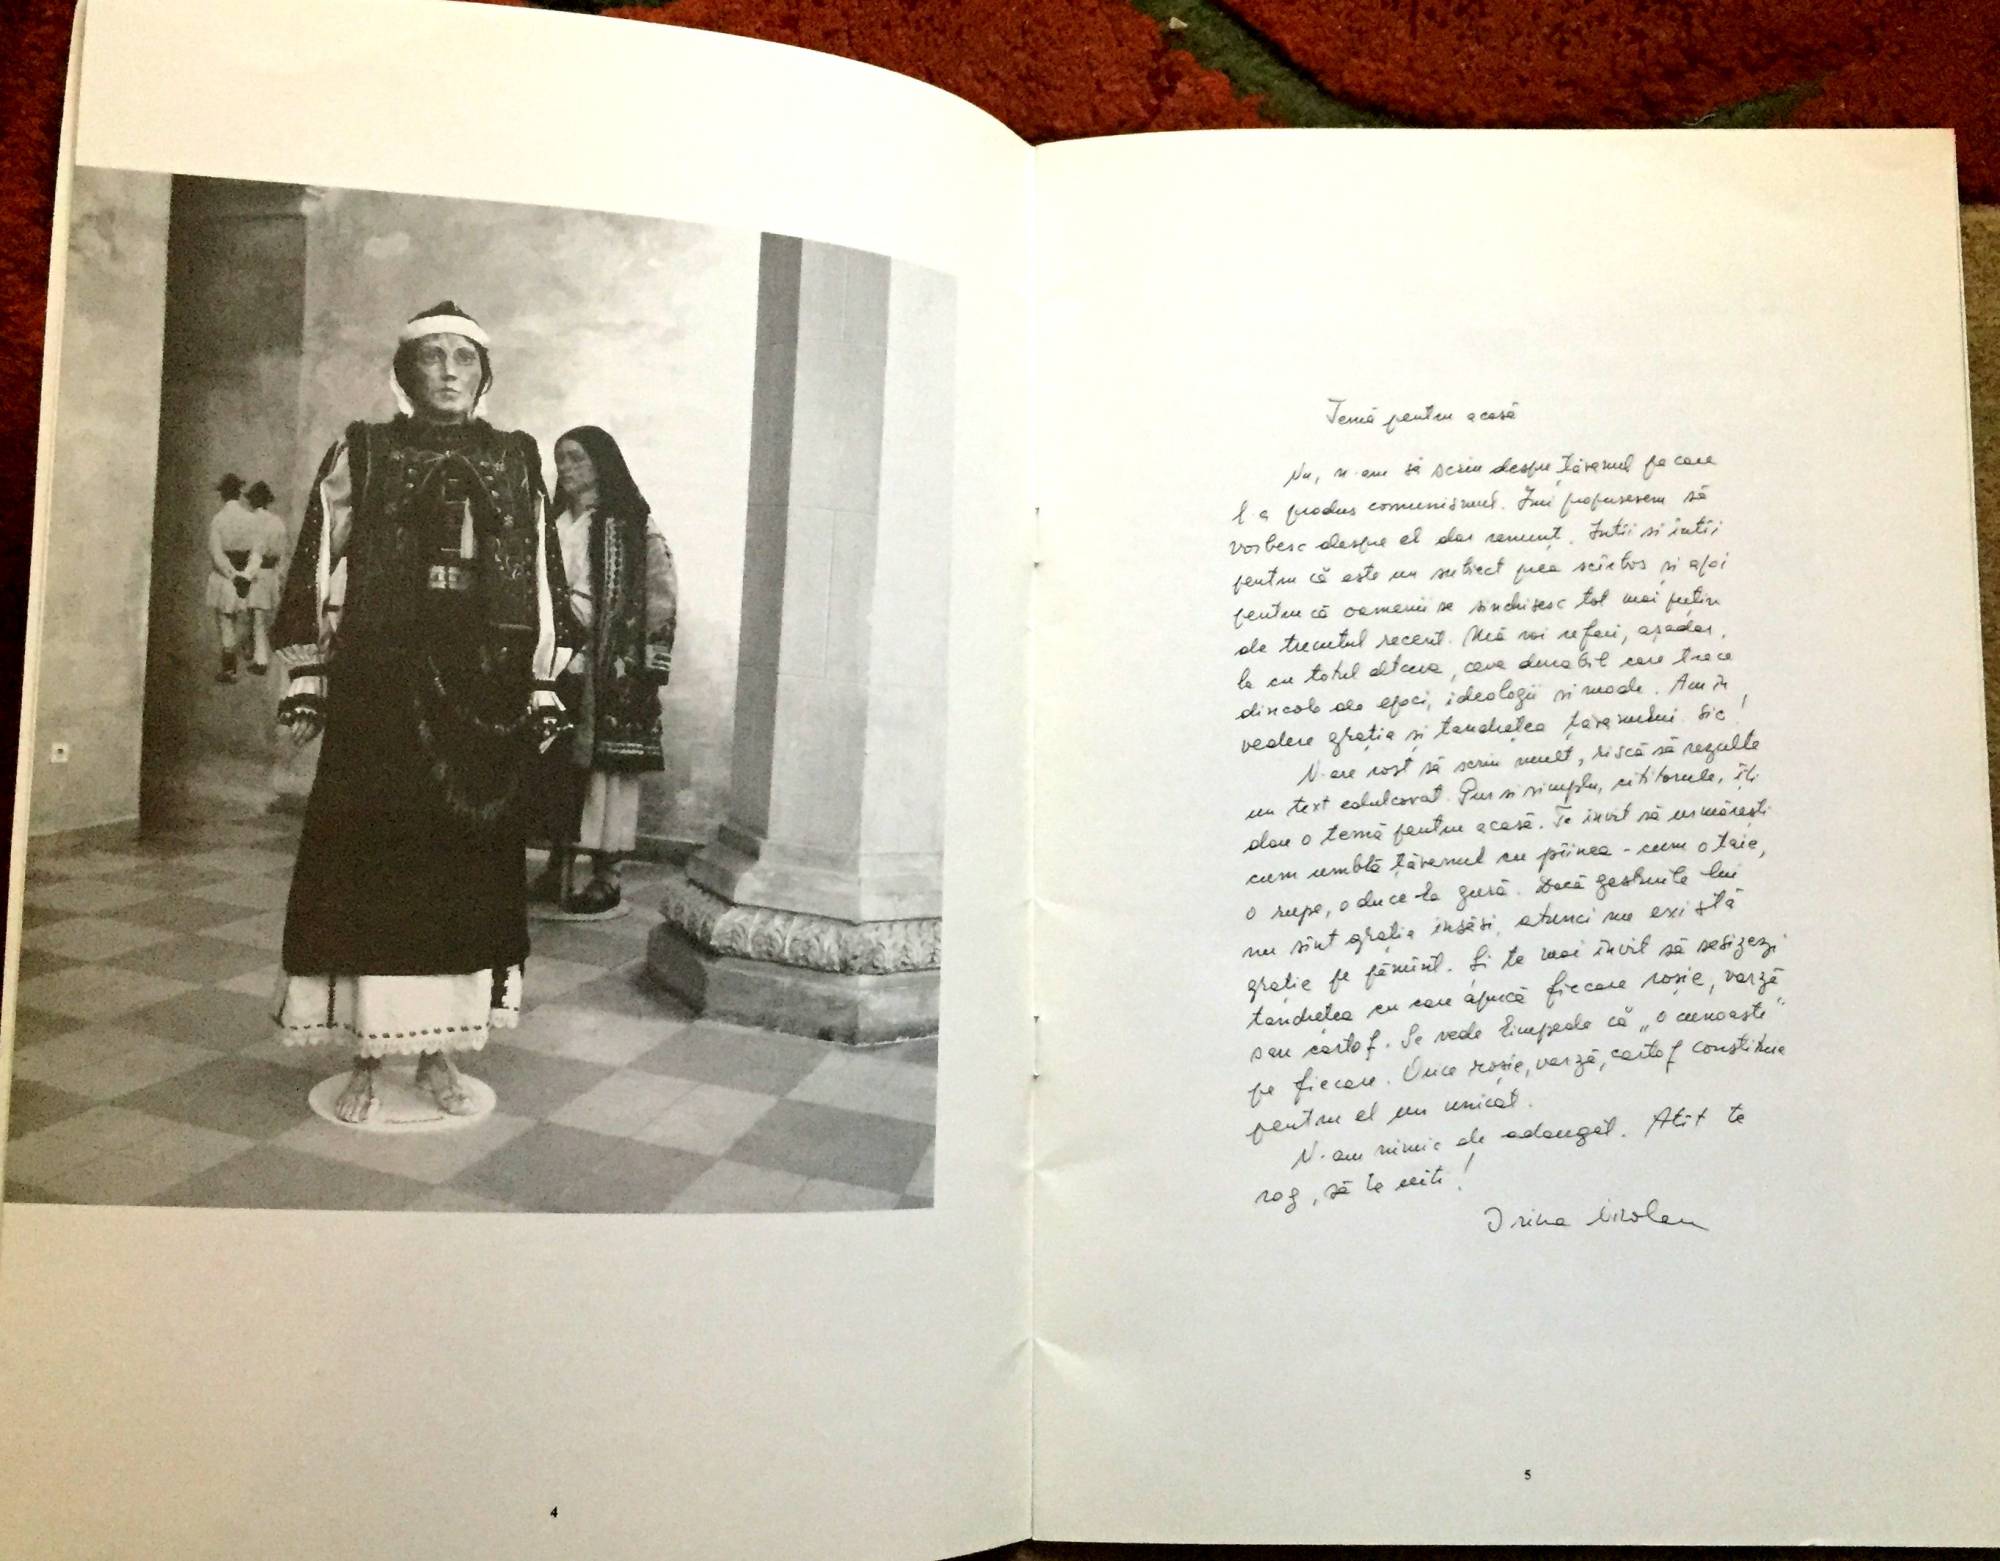 Temă pentru acasă
Nu, n-am să scriu despre țăranul pe care
l-a produs comunismul. Îmi propusesem să
vorbesc despre el dar renunț. Întîi și întîi
pentru că este un subiect prea scîrbos și apoi
pentru că oamenii se sinchisesc tot mai puțin
de trecutul recent. Mă voi referi, așadar,
la cu totul altceva, ceva durabil care trece
dincolo de epoci, ideologii și mode. Am în
vedere grația și tandrețea țăranului. Sic!
N-are rost să scriu mult, riscă să rezulte
un text edulcorat. Pur si simplu, cititorule, îți
dau o temă pentru acasă. Te invit să urmărești
cum umblă țăranul cu pîinea - cum o taie,
o rupe, o duce la gură. Dacă gesturile lui
nu sînt grația însăși, atunci nu există
grație pe pămînt. Și te mai invit să sesizezi
tandrețea cu care apucă fiecare roșie, varză
sau cartof. Se vede limpede că „o cunoaște"
pe fiecare. Orice roșie, varză, cartof constituie
pentru el un unicat.
N-am nimic de adăugat. Atît te
rog, să te uiți!
Irina Nicolau
4
5